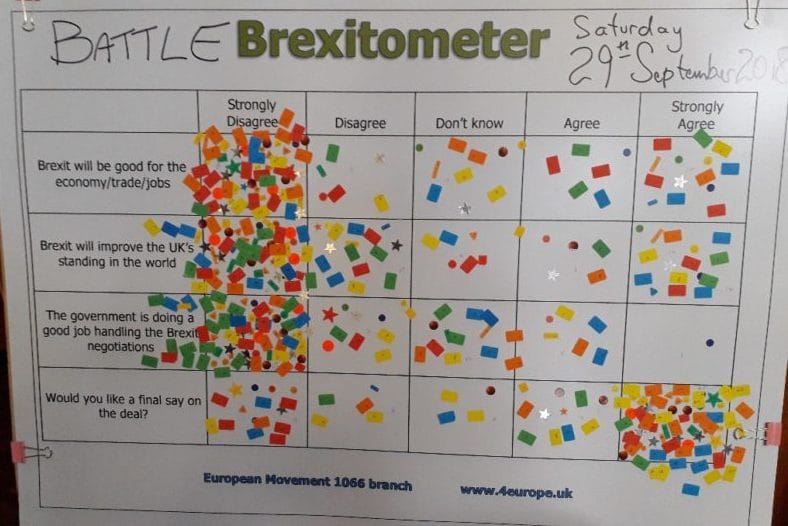 BATTLE Brexitometer Saturday
29th September 2018
Strongly Disagree
Disagree
Don't know
Agree
Strongly Agree
Brexit will be good for the
economy/trade/jobs
Brexit will improve the UK's
standing in the world
The government is doing a
good job handling the Brexit
negotiations
Would you like a final say on
the deal?
European Movement 1066 branch
www.4europe.uk